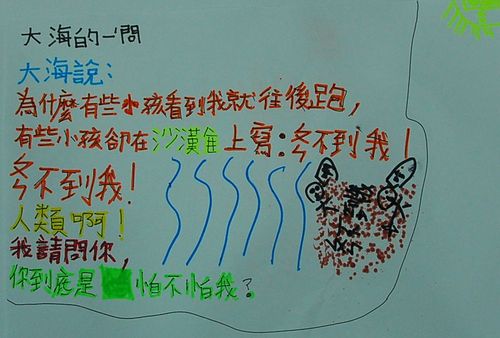 大海的一問
大海說：
為什麼有些小孩看到我就往後跑，
有些小孩卻在沙漠隹上寫：冬不到我！
冬不到我！
人類啊！
我請問你，
你到底是怕不怕我？